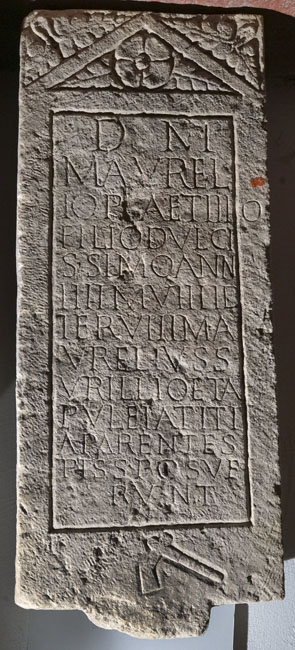 D M
M AVREL
IO
FILIO DVLC
SSIMO ANN
IIII M VIIII D
MA
VRELIVS S
VRILLIO ET A
PVLEIA TITI
A PARENTES
PISS POSVE
RVNT